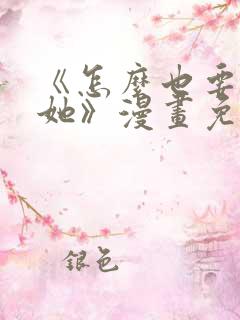 《怎麼也要
她》漫畫免
銀色